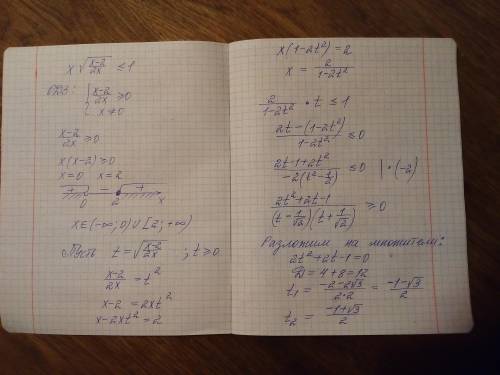 x√((x-2)/(2x)) ≤ 1
ОДЗ: { (x-2)/(2x) ≥ 0
{ x ≠ 0
(x-2)/(2x) ≥ 0
x(x-2) ≥ 0
x=0 x=2
+ - +
0 2 x
x∈(-∞; 0) ∪ [2; +∞)
Пусть t = √((x-2)/(2x)) ; t ≥ 0
(x-2)/(2x) = t²
x-2 = 2xt²
x-2xt² = 2
x(1-2t²) = 2
x = 2/(1-2t²)
2/(1-2t²) · t ≤ 1
(2t-(1-2t²))/(1-2t²) ≤ 0
(2t-1+2t²)/(-2(t²-1/2)) ≤ 0 | · (-2)
(2t²+2t-1)/((t-1/√2)(t+1/√2)) ≥ 0
Разложим на множители:
2t²+2t-1=0
D = 4+8=12
t₁ = (-2-2√3)/(2·2) = (-1-√3)/2
t₂ = (-1+√3)/2